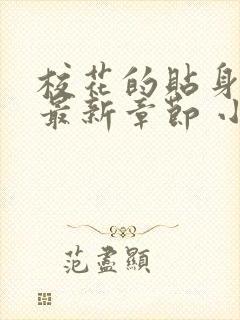 校花的貼身
最新章節 小
范盡顯